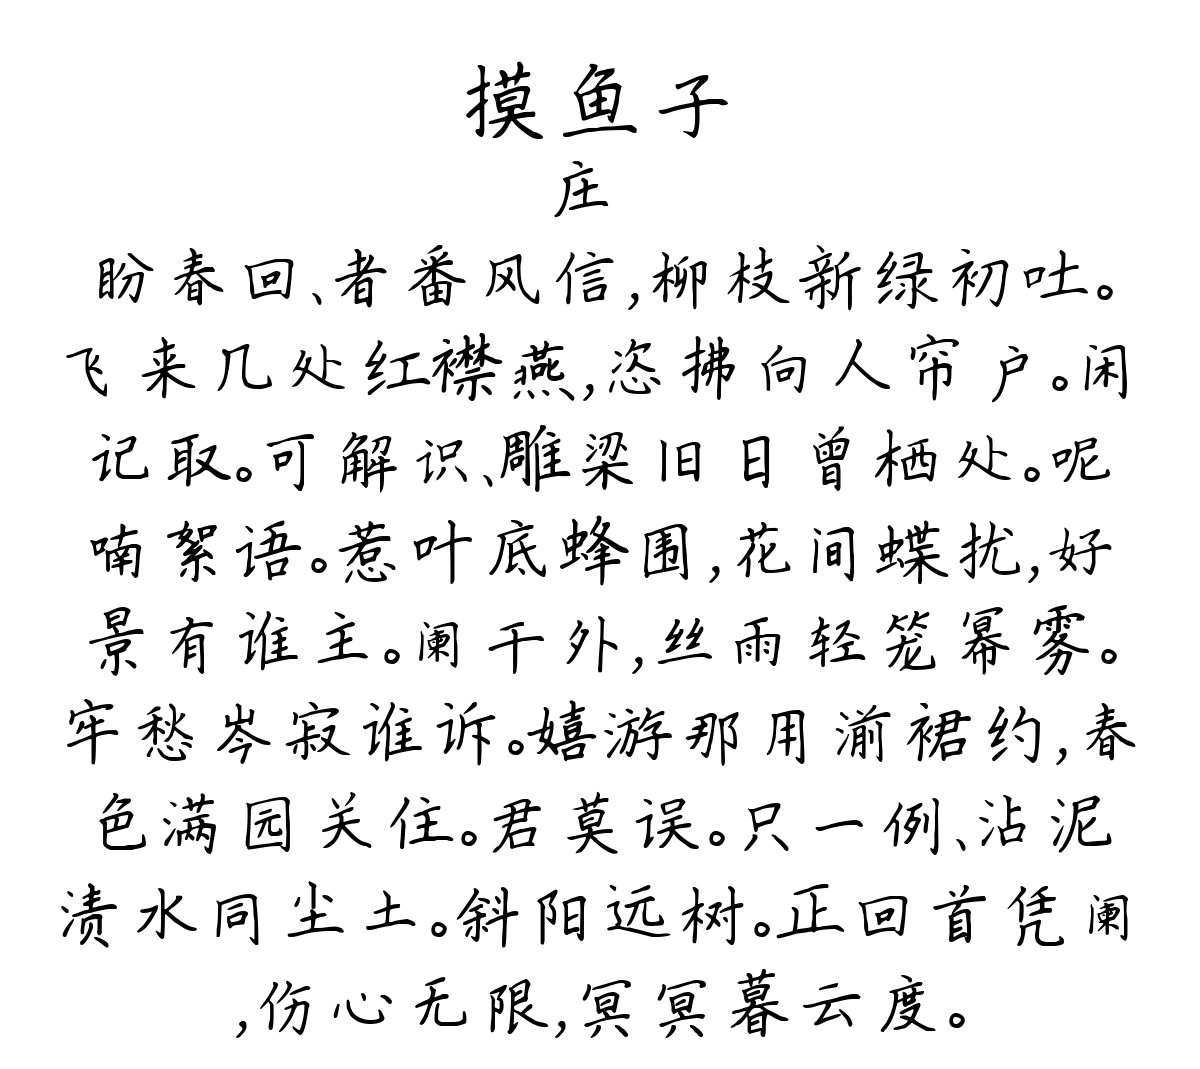 摸鱼子
庄
盼春回、者番风信,柳枝新绿初吐。
飞来几处红襟燕,恣拂向人帘户。闲
记取。可解识、雕梁旧日曾栖处。呢
喃絮语。惹叶底蜂围,花间蝶扰,好
景有谁主。阑干外,丝雨轻笼幂雾。
牢愁岑寂谁诉。嬉游那用湔裙约,春
色满园关住。君莫误。只一例、沾泥
渍水同尘土。斜阳远树。正回首凭阑
,伤心无限,冥冥暮云度。